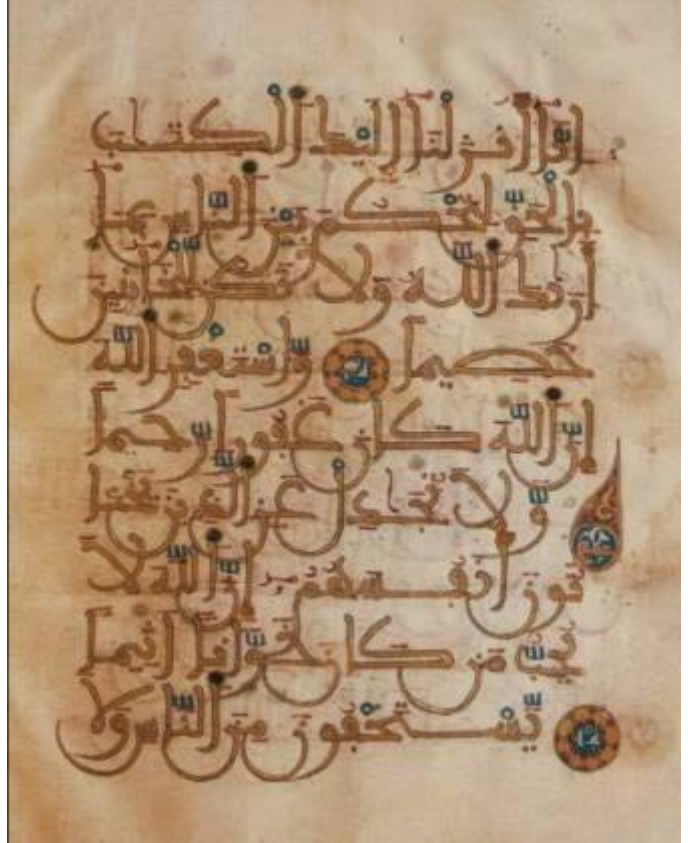 إنا أنزلنا إليك الكتاب
بالحق لتحكم بين الناس بما
أريك الله ولا تكن للخائنين
خصيما واستغفر الله
إن الله كان غفورا رحيما
ولا تجدل عن الذين يختا
نون أنفسهم إن الله لا
يحب من كان خوانا أثيما
يستخفون من الناس ولا